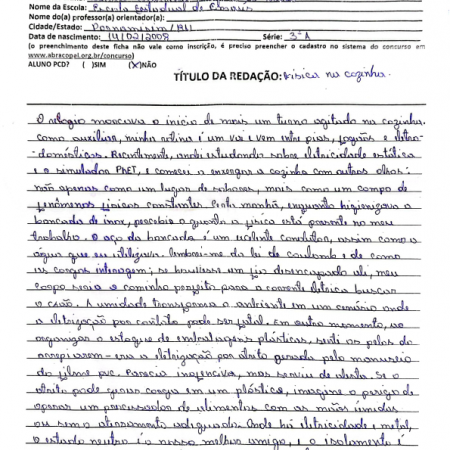 Nome da Escola: Escola Estadual de
Nome do(a) professor(a) orientador(a):
Cidade/Estado: Parnamirim/RN
Data de nascimento: 14/02/2008 Série: 3ª A
(o preenchimento deste ficha não vale como inscrição, é preciso preencher o cadastro no sistema do concurso em
www.abracopel.org.br/concurso)
ALUNO PCD? ( )SIM (X)NÃO
TÍTULO DA REDAÇÃO: Física na cozinha.
O relógio marcava o início de mais um turno agitado na cozinha.
Como auxiliar, minha rotina é um vai e vem entre pias, fogões e eletro-
-domésticos. Recentemente, ando estudando sobre eletricidade estática
e o simulador PhET, e comecei a enxergar a cozinha com outros olhos:
não apenas como um lugar de sabores, mais como um campo de
fenômenos físicos constantes. Cada manhã, enquanto higienizava a
bancada de inox, percebia o quanto a física está presente no meu
trabalho. O aço da bancada é um excelente condutor, assim como a
água que eu utilizava. Lembrei-me da lei de coulomb e de como
as cargas interagem; se houvesse um fio desencapado ali, meu
corpo seria o caminho perfeito para a corrente elétrica buscar
o chão. A umidade transforma o ambiente em um cenário onde
a eletrização por contato pode ser fatal. Em outro momento, ao
organizar o estoque de embalagens plásticas, senti os pelos do
arrepiarem - era a eletrização por atrito gerada pelo manuseio
do filme pvc. Parecia inofensivo, mas serviu de alerta. Se o
atrito pode gerar carga em um plástico, imagine o perigo de
operar um processador de alimentos com as mãos úmidas
ou sem o aterramento adequado. Onde há eletricidade e metal,
o estado neutro é o nosso melhor amigo, e o isolamento é